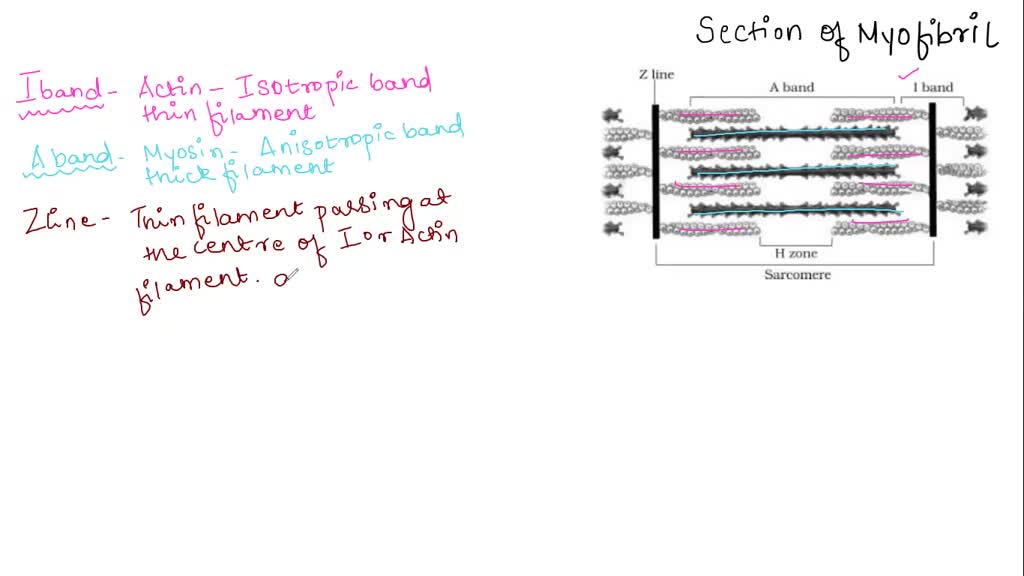 Section of Myofibril
I band - Actin - Isotropic band
thin filament
A band - Myosin - Anisotropic band
thick filament
Z line - Thin filament passing at
the centre of I or Actin
filament.
Z line
A band
I band
H zone
Sarcomere